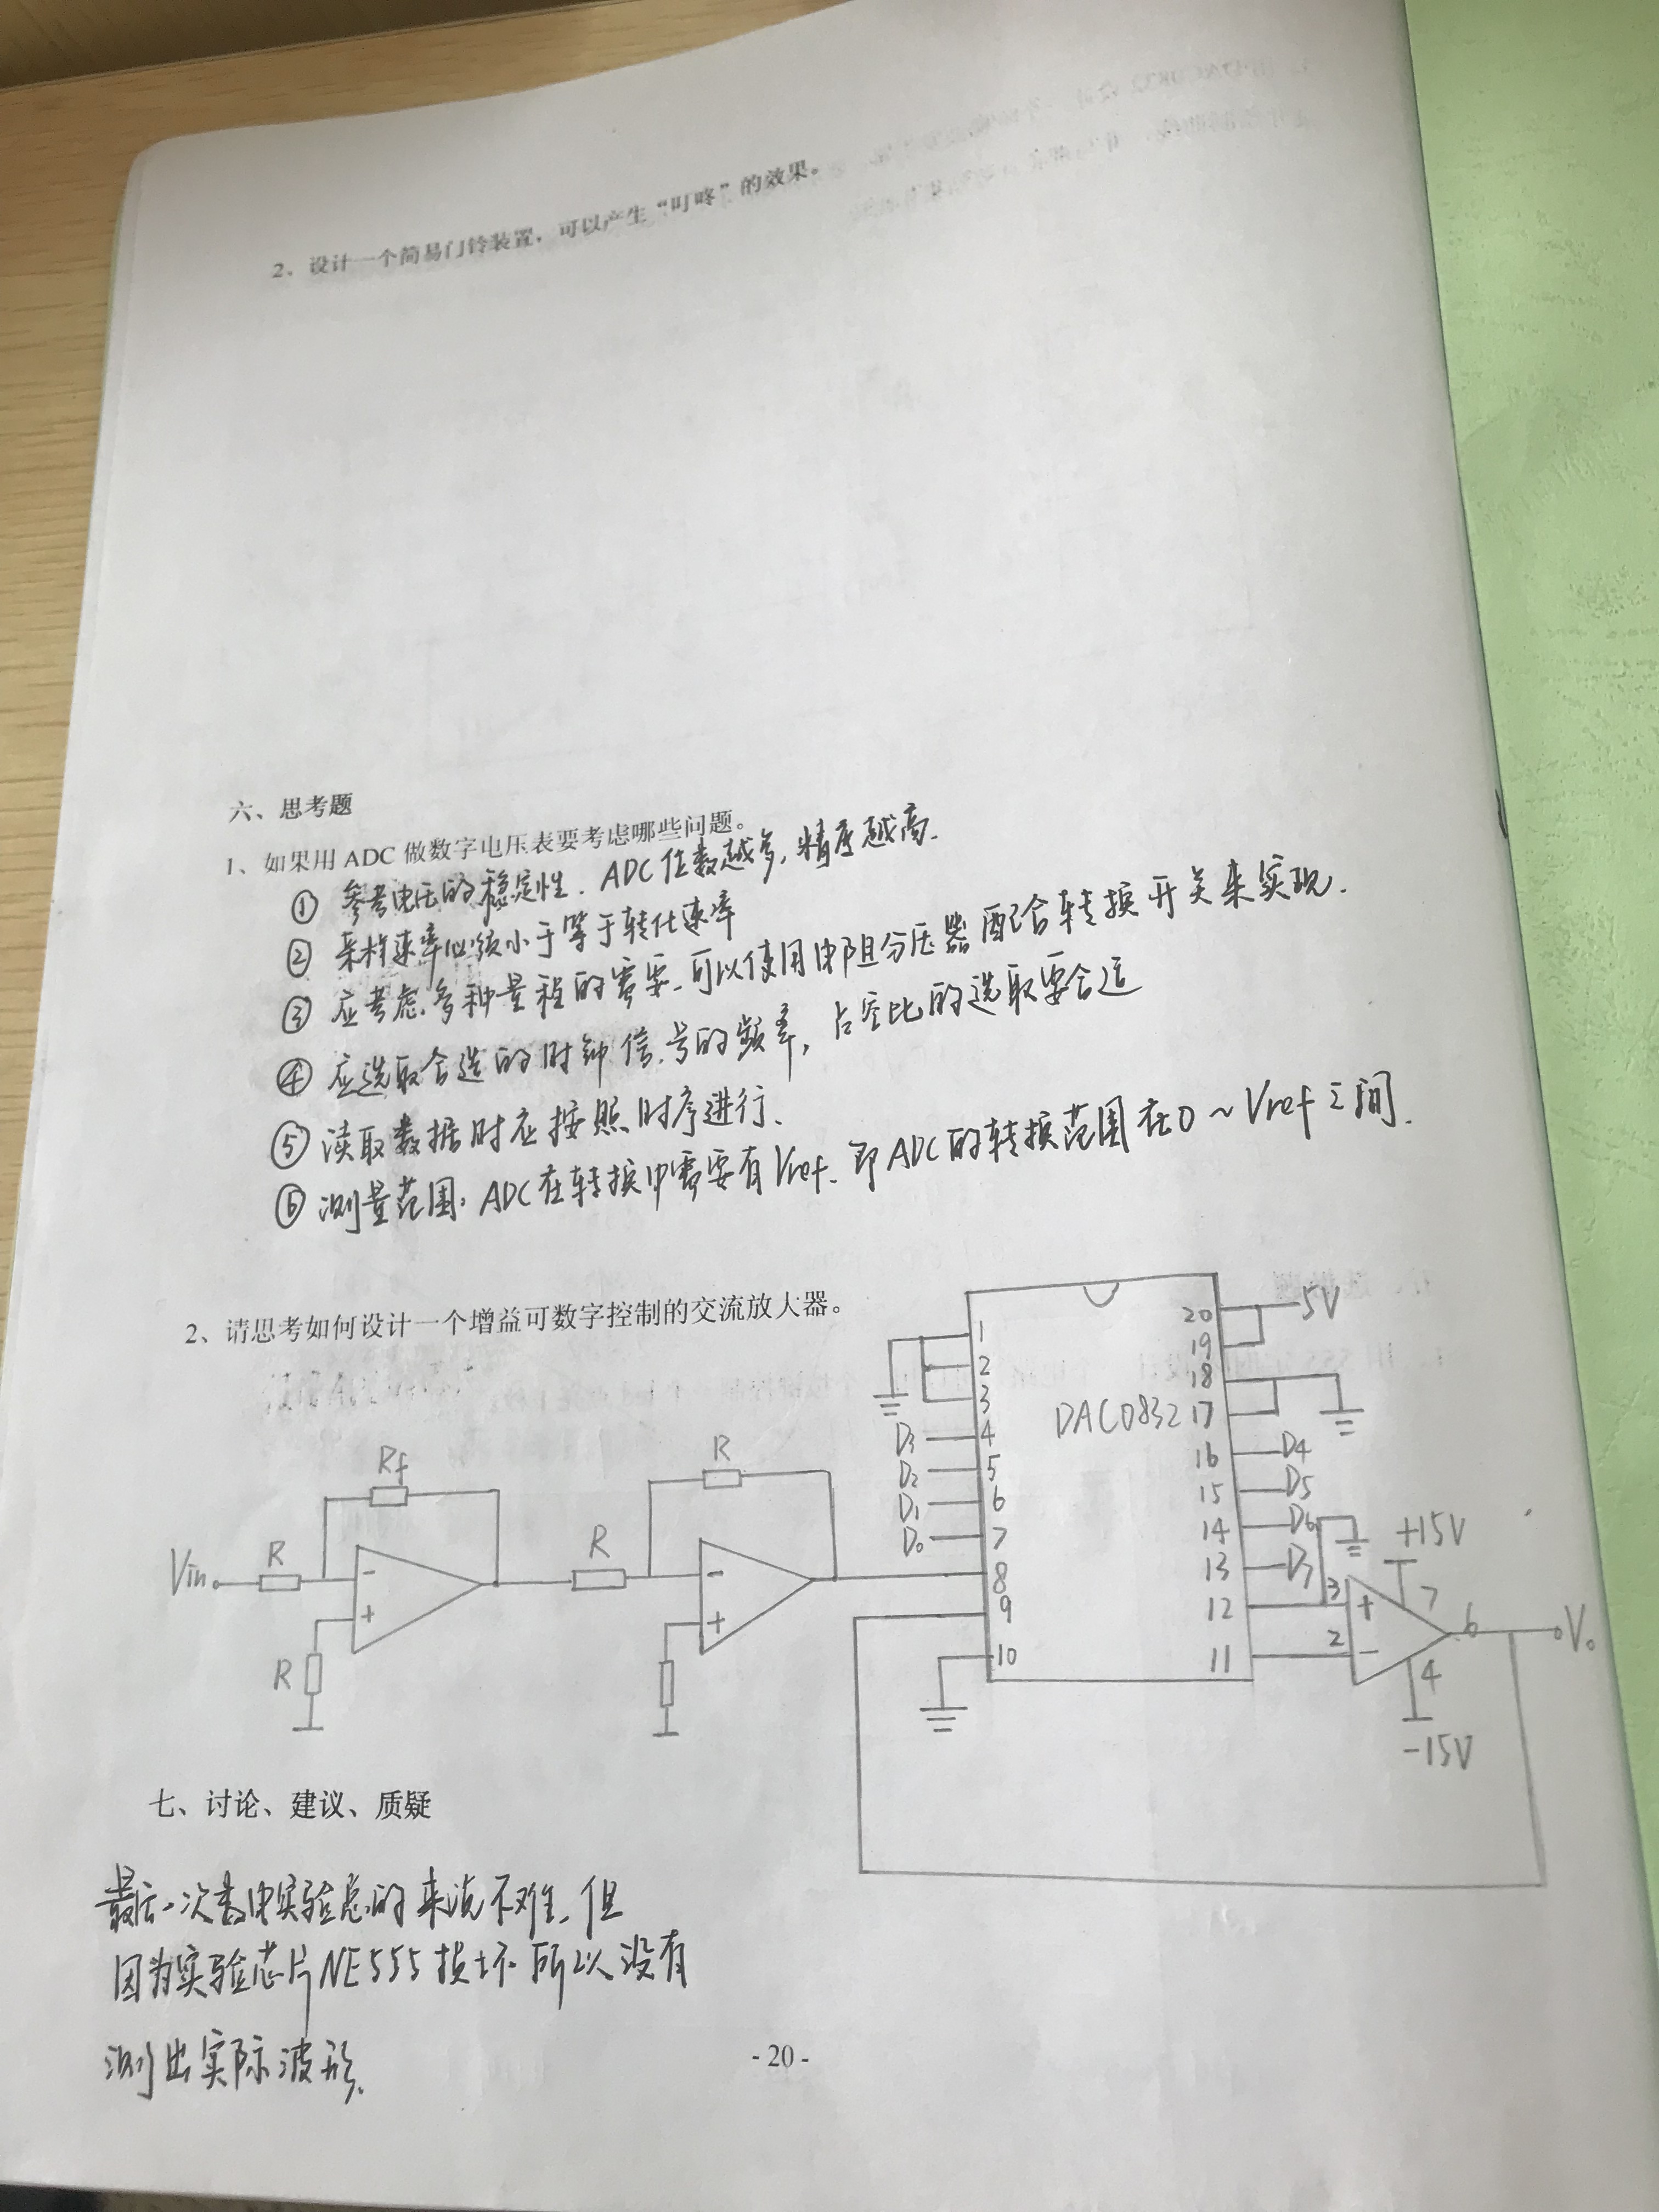 2、设计一个简易门铃装置，可以产生“叮咚”的效果。
六、思考题
1、如果用 ADC 做数字电压表要考虑哪些问题。
① 参考电压的稳定性. ADC位数越多, 精度越高.
② 采样速率必须小于等于转化速率
③ 应考虑多种量程的需要. 可以使用电阻分压器配合转换开关来实现.
④ 应选取合适的时钟信号的频率, 占空比的选取要合适
⑤ 读取数据时应按照时序进行.
⑥ 测量范围: ADC在转换中需要有Vref. 即ADC的转换范围在0~Vref之间.
2、请思考如何设计一个增益可数字控制的交流放大器。
Vin
R
Rf
-
+
R
R
R
-
+
DAC0832
1
2
3
D3 4
D2 5
D1 6
D0 7
8
9
10
20 5V
19
18
17
16 D4
15 D5
14 D6
13 D7
12
11
3 +
2 -
+15V
7
6
4
-15V
Vo
七、讨论、建议、质疑
最后一次数电实验总的来说不难. 但
因为实验芯片NE555损坏所以没有
测出实际波形.
- 20 -